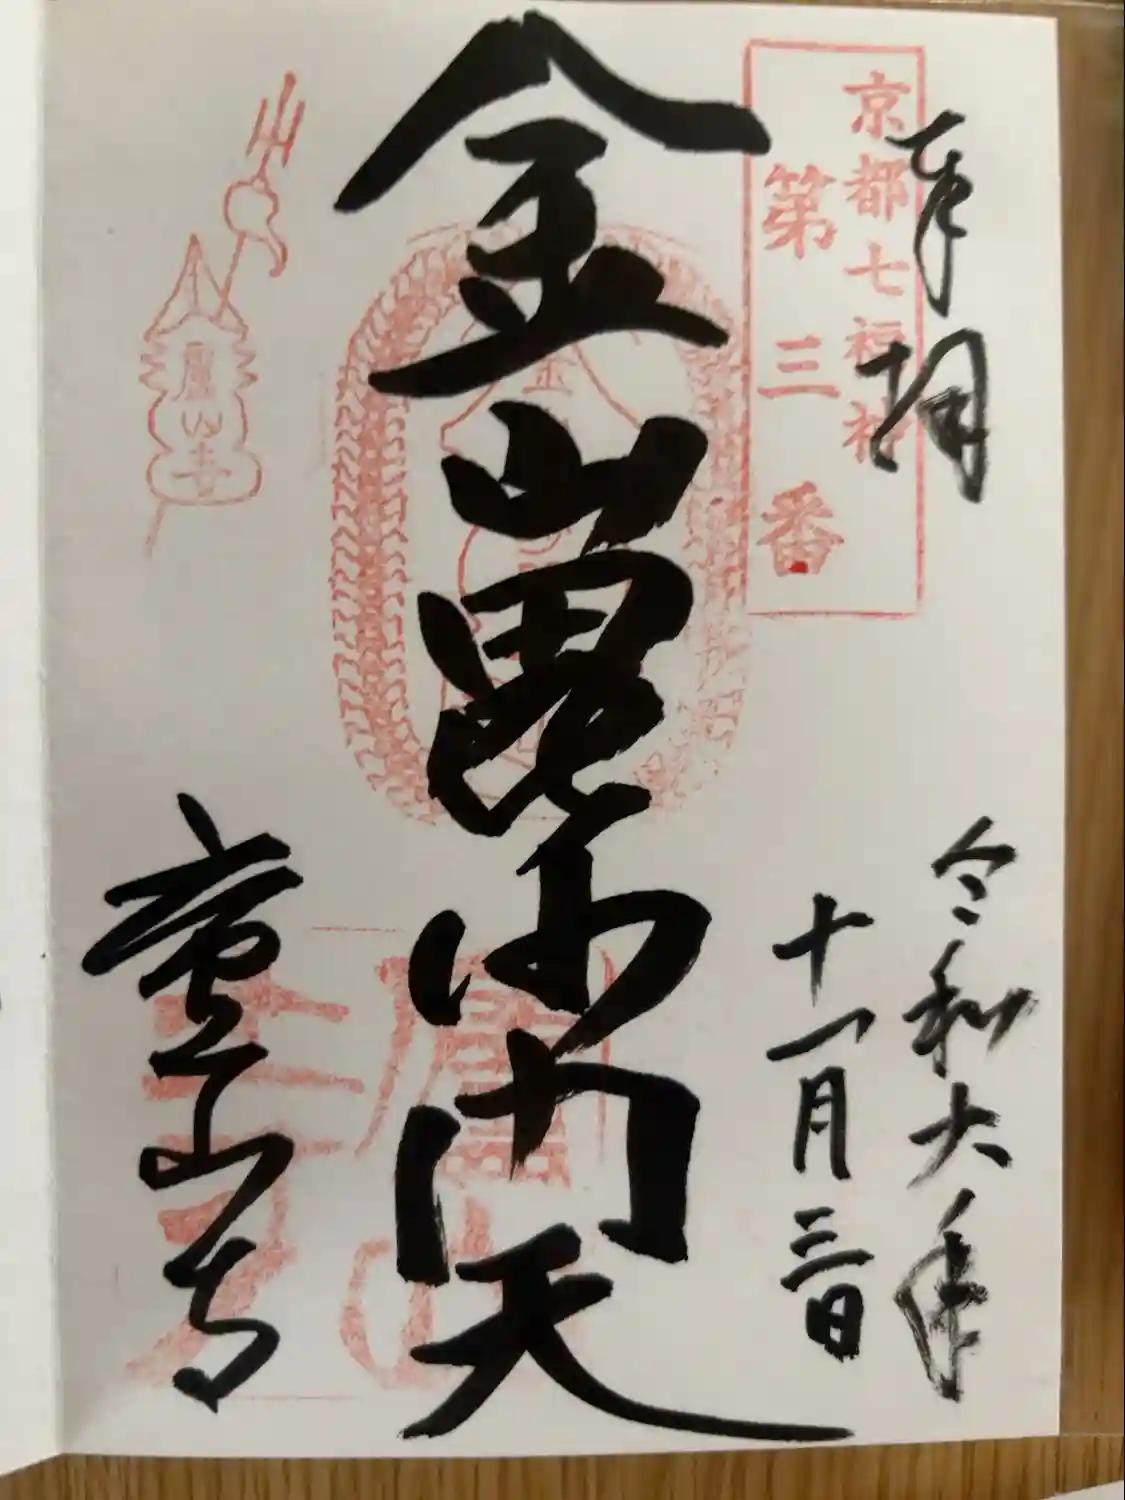 奉拝
京都七福神
第三番
令和六年
十一月三日
金山毘沙門天
廬山寺
廬山寺